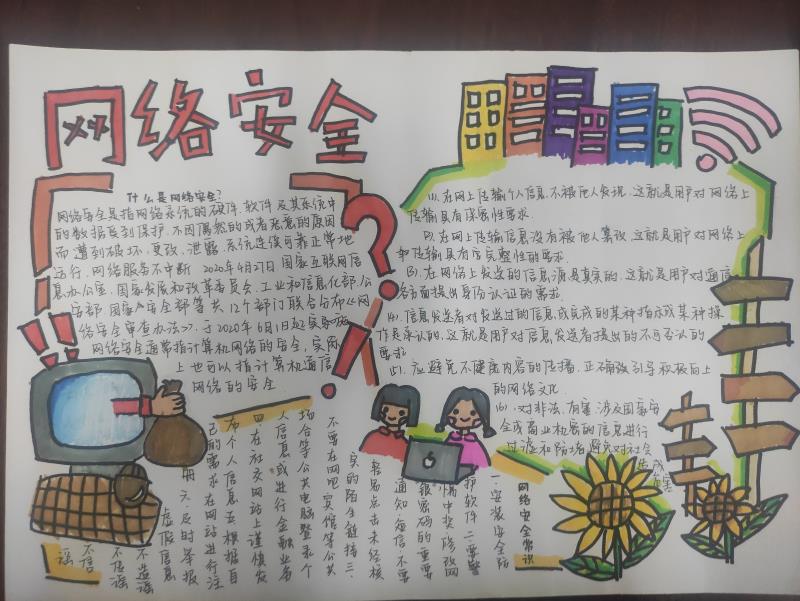 网络安全
什么是网络安全?
网络安全是指网络系统的硬件、软件及其系统中
的数据受到保护,不因偶然的或者恶意的原因
而遭到破坏、更改、泄露,系统连续可靠正常地
运行,网络服务不中断。2020年4月27日,国家互联网信
息办公室、国家发展和改革委员会、工业和信息化部、公
安部、国家安全部等共12个部门联合发布《网
络安全审查办法》,于2020年6月1日起实施。
网络安全通常指计算机网络的安全,实际
上也可以指计算机通信
网络的安全。
(1).在网上传输个人信息,不被他人发现,这就是用户对网络上
传输具有保密性要求。
(2).在网上传输信息没有被他人篡改,这就是用户对网络上
传输具有完整性的要求。
(3).在网络上发送的信息源是真实的,这就是用户对通信
各方面提出身份认证的要求。
(4).信息发送者对发送过的信息或完成的某种指示或某种操
作是承认的,这就是用户对信息发送者提出的不可否认的
要求
(5).应避免不健康内容的传播,正确引导积极向上
的网络文化。
(6).对非法、有害、涉及国家安
全或商业机密的信息进行
过滤和防堵,避免对社会
造成
危害
网络安全常识
一、安装安全防
护软件 二、要警
惕中奖、修改网
银密码的重要
通知短信,不要
轻易点击未经核
实的陌生链接 三、
不要在网吧、宾馆等公共
场合等公共电脑登录个
人信息或进行金融业务
四、在社交网站上谨慎发
布个人信息 五、根据自
己的需求在网站进行注
册 六、及时举报
虚假信息
不造谣
不传谣
不信
谣